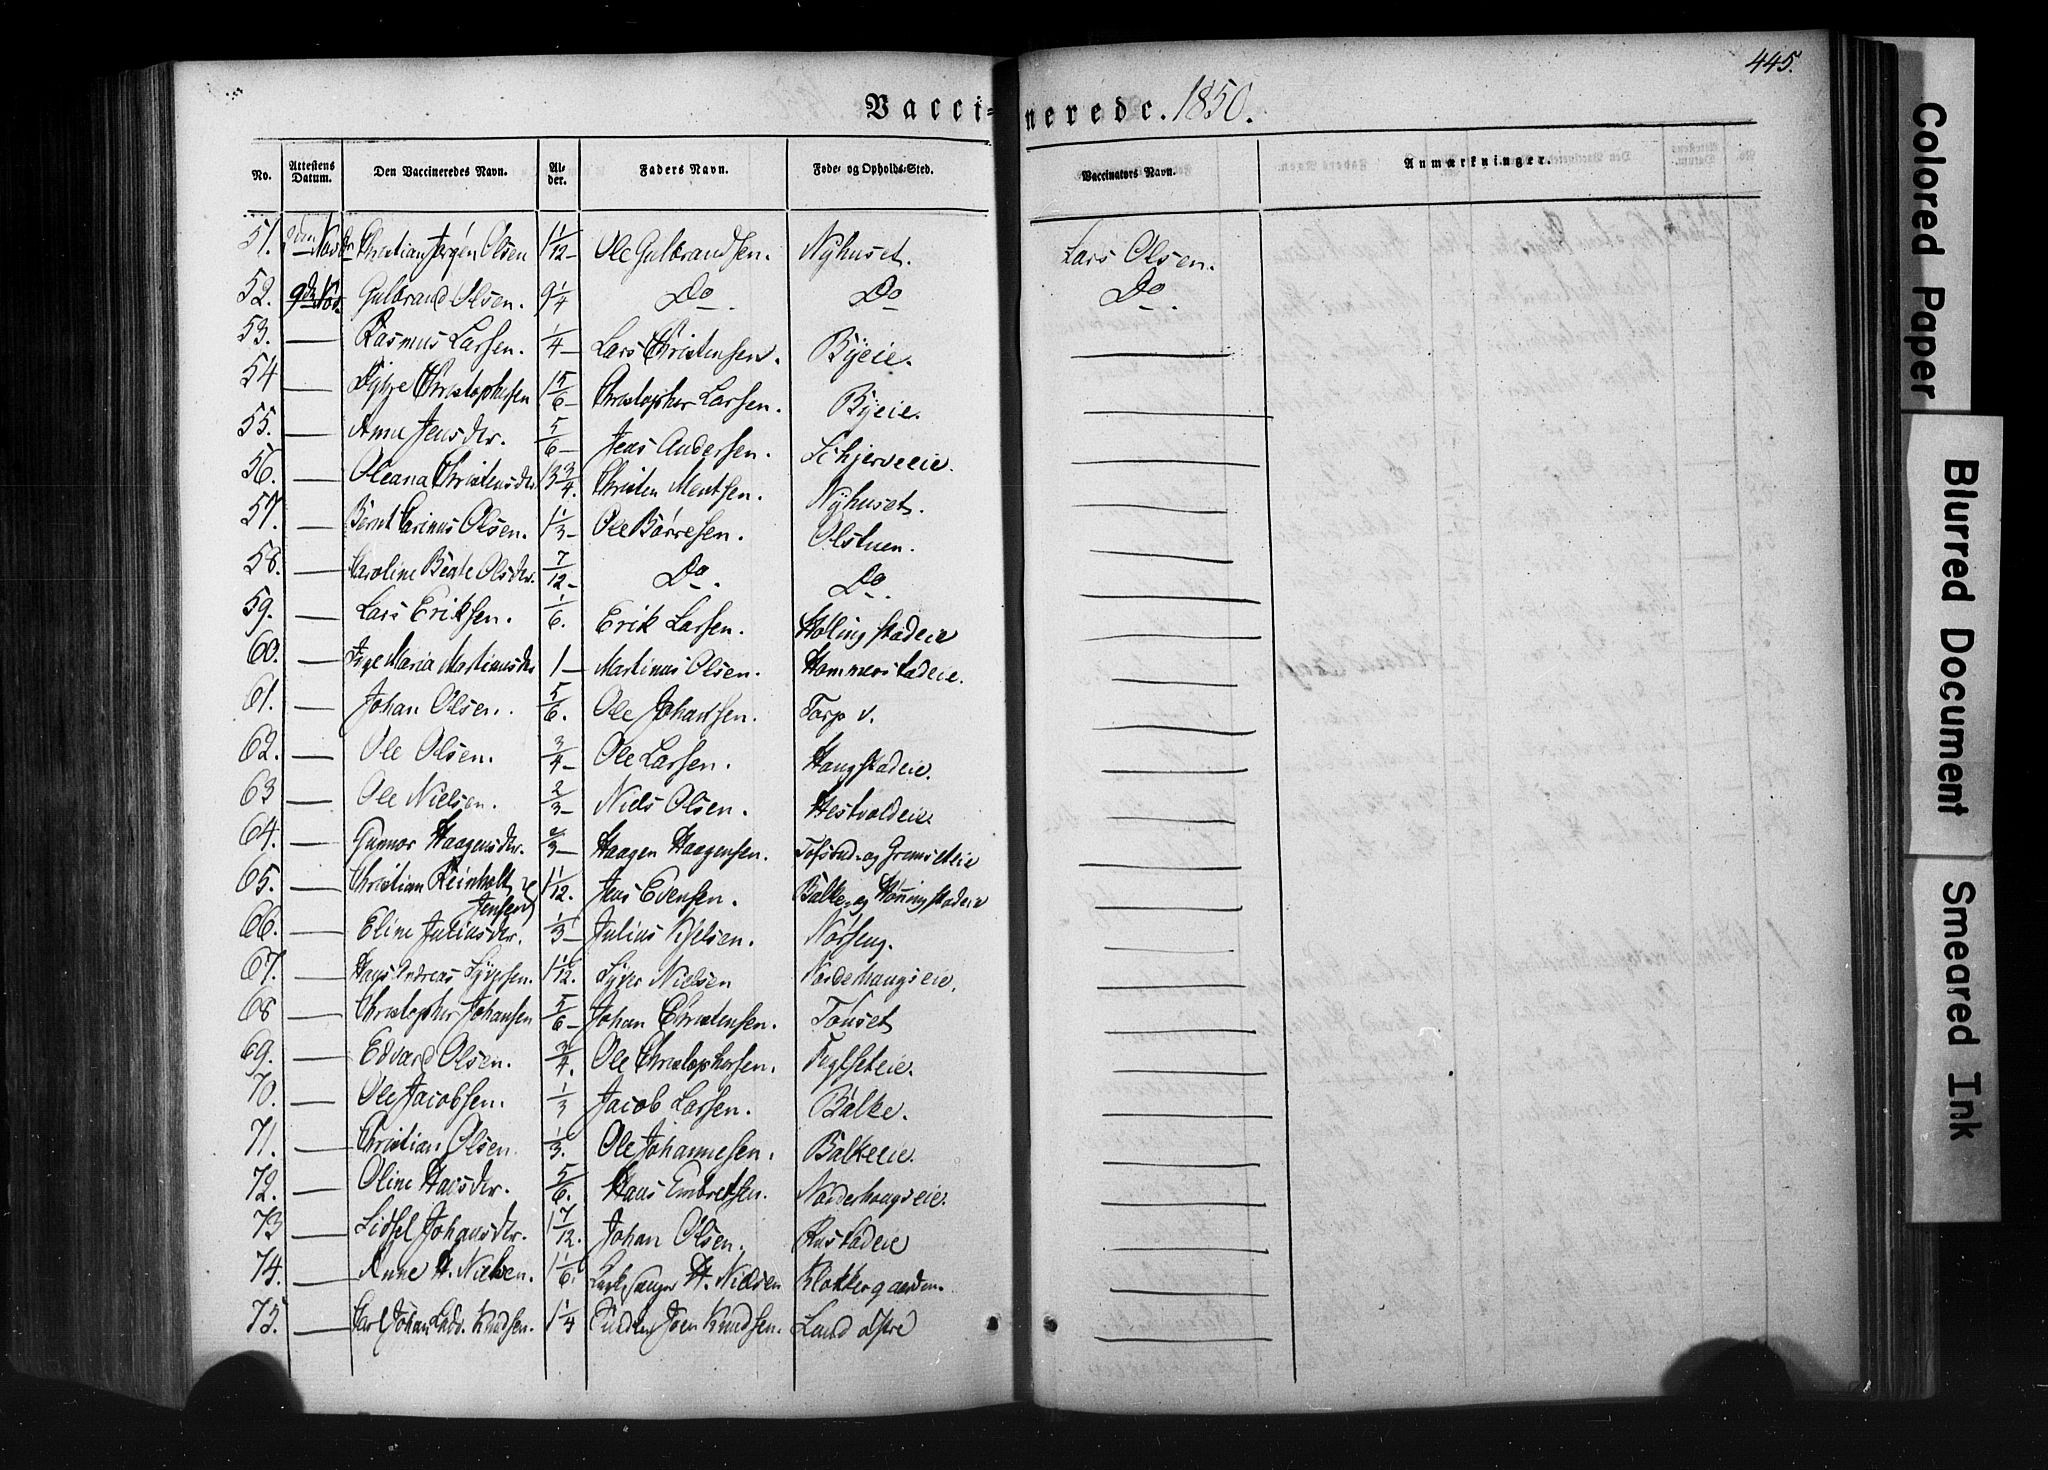 445.
Vaccinerede. 1850.
No. Attestens Datum. Den Vaccineredes Navn. Alder. Faders Navn. Føde- og Opholds-Sted. Vaccinators Navn. Anmærkninger.
51. Christian Jørgen Olsen 1 1/12 - Ole Gulbrandsen. Nyhuset. Lars Olsen.
52. 9de Nov. Gulbrand Olsen. 9 1/4 Do. Do Do.
53. — Rasmus Larsen. 1/4 - Lars Christensen. Byeie. —
54 — Christophersen 1 5/6 - Christopher Larsen. Byeie. —
55. — Anne Jensdtr. 5/6 - Jens Andersen. Schjerveeie. —
56. — Oleana Christensdtr 13 3/4. Christen Mentsen. Nyhuset. —
57. — Bernt Carinus Olsen. 1 1/3 - Ole Børresen. Olstuen. —
58. — Caroline Beate Olsdtr. 7/12 - Do. Do. —
59. — Lars Eriksen. 1/6. Erik Larsen. —
60. — Maria Martinusdtr 1 — Martinus Olsen. Hammerstadeie. —
61. — Johan Olsen. 5/6. Ole Johansen. Torp v. —
62. — Ole Olsen. 3/4 - Ole Larsen. Haugstadeie. —
63 — Ole Nielsen. 2/3 - Niels Olsen. Hestvoldeie. —
64. — Gunnor Haagensdtr. 2/3 - Haagen Haagensen. og Gremseteie —
65. — Christian Reinholt Jensen 1 1/12. Jens Evensen. Balke- og —
66. — Eline Juliusdtr. 1/3 - Julius Kjelsen. Nørseng. —
67. — Hans Andreas Syversen. Syver Nielsen Norderhaugseie. —
68 — Christopher Johansen 5/6 - Johan Christensen. —
69. — Edvard Olsen. 3/4. Ole Christophersen. —
70. — Ole Jacobsen. 1/3 Jacob Larsen. Balke. —
71. — Christian Olsen 1/3. Ole Johannesen. Balkeeie. —
72. — Oline Hansdtr. 5/6. Hans Embretsen. Norderhaugseie. —
73 — Johansdtr. 1 7/12. Johan Olsen. Rustadeie —
74. — Anne H. Nielsen. 1 1/6. Kirkesanger H. Nielsen Klokkergaarden. —
75. — Carl Johan Ludv. Knudsen. 1 1/4 Joen Knudsen. Lund østre —
Colored Paper
Blurred Document
Smeared Ink